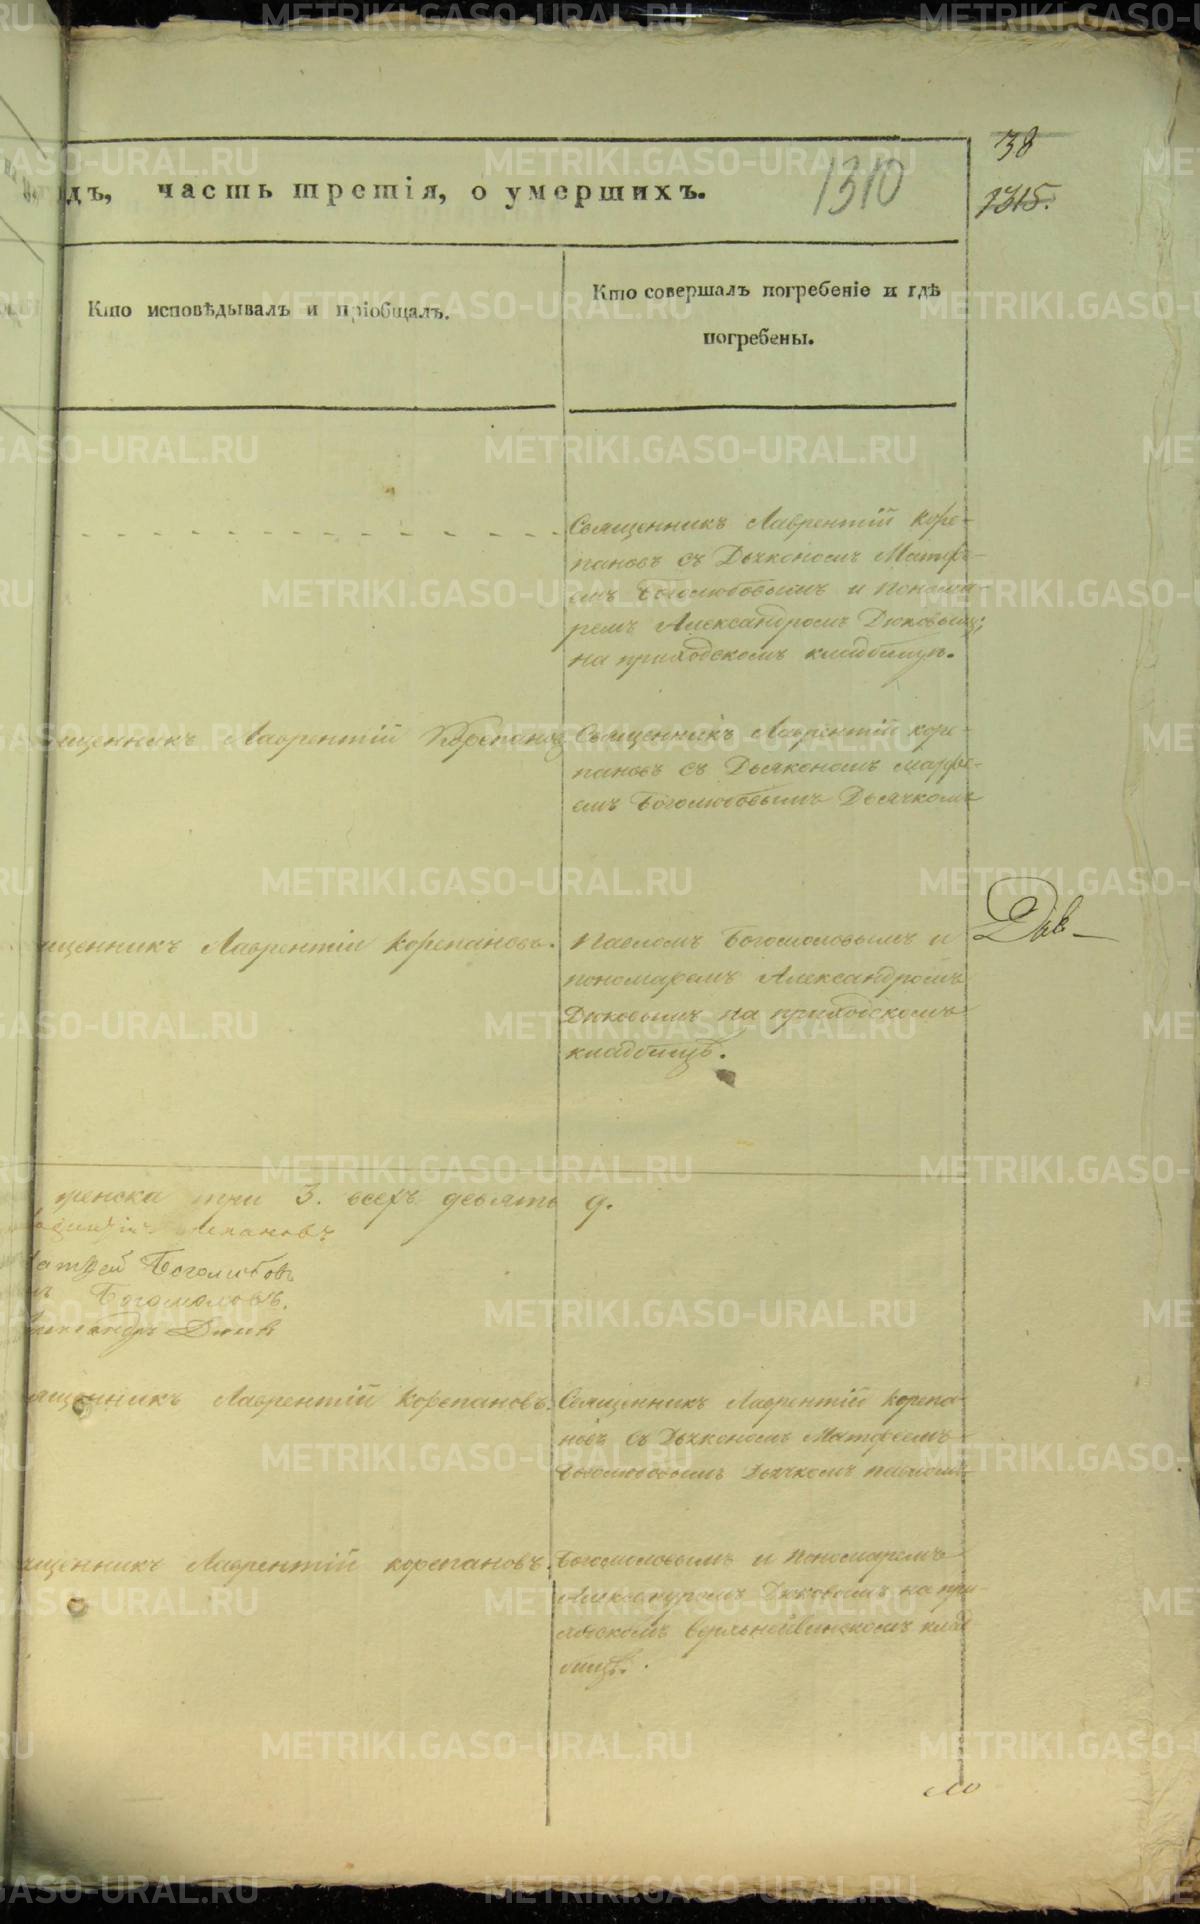 38
1315.
1310
дъ, часть третія, о умершихъ.
Кто исповѣдывалъ и пріобщалъ.
Кто совершалъ погребеніе и гдѣ
погребены.
Священникъ Лаврентій Коре-
пановъ съ Дьякономъ Матфѣ-
емъ Боголюбовымъ и Понома-
ремъ Александромъ Дюковымъ;
на приходскомъ кладбищѣ.
щенникъ Лаврентій Корепановъ
Священникъ Лаврентій Коре-
пановъ съ Дьякономъ Матфе-
емъ Боголюбовымъ Дьячкомъ
щенникъ Лаврентій Корепановъ.
Павломъ Богомоловымъ и
пономаремъ Александромъ
Дюковымъ на приходскомъ
кладбищѣ.
женска три 3. всехъ девять 9.
Боголюбовъ
Богомоловъ.
щенникъ Лаврентій Корепановъ.
Священникъ Лаврентій Корепа-
новъ съ Дьякономъ Матфеемъ
Боголюбовымъ Дьячкомъ Павломъ
щенникъ Лаврентій Корепановъ.
Богомоловымъ и Пономаремъ
Александромъ Дюковымъ на при-
Верхнейвинскомъ клад
бищѣ.
METRIKI.GASO-URAL.RU